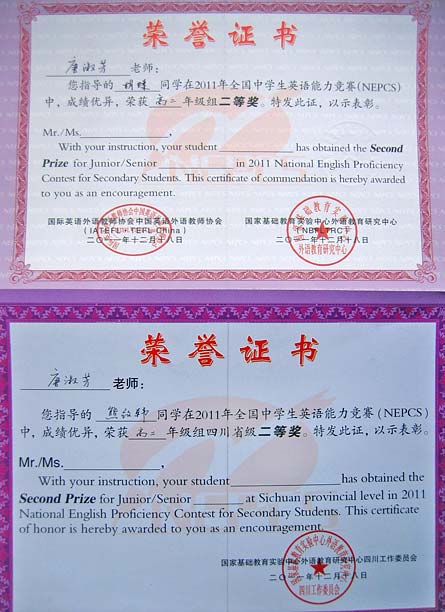 荣誉证书
唐淑芳 老师：
您指导的 同学在2011年全国中学生英语能力竞赛(NEPCS)
中，成绩优异，荣获 高二 年级组二等奖。特发此证，以示表彰。
Mr./Ms. ,
With your instruction, your student has obtained the Second
Prize for Junior/Senior in 2011 National English Proficiency
Contest for Secondary Students. This certificate of commendation is hereby awarded
to you as an encouragement.
国际英语外语教师协会中国英语外语教师协会 国家基础教育实验中心外语教育研究中心
(IATEFL·TEFL China)
二〇一一年十二月十八日 二〇一一年十二月十八日
外语教育研究中心
荣誉证书
唐淑芳 老师：
您指导的 同学在2011年全国中学生英语能力竞赛(NEPCS)
中，成绩优异，荣获 高二 年级组四川省级二等奖。特发此证，以示表彰。
Mr./Ms. ,
With your instruction, your student has obtained the
Second Prize for Junior/Senior at Sichuan provincial level in 2011
National English Proficiency Contest for Secondary Students. This certificate
of honor is hereby awarded to you as an encouragement.
国家基础教育实验中心外语教育研究中心四川工作委员会
二〇一一年十二月十八日
四川工作委员会